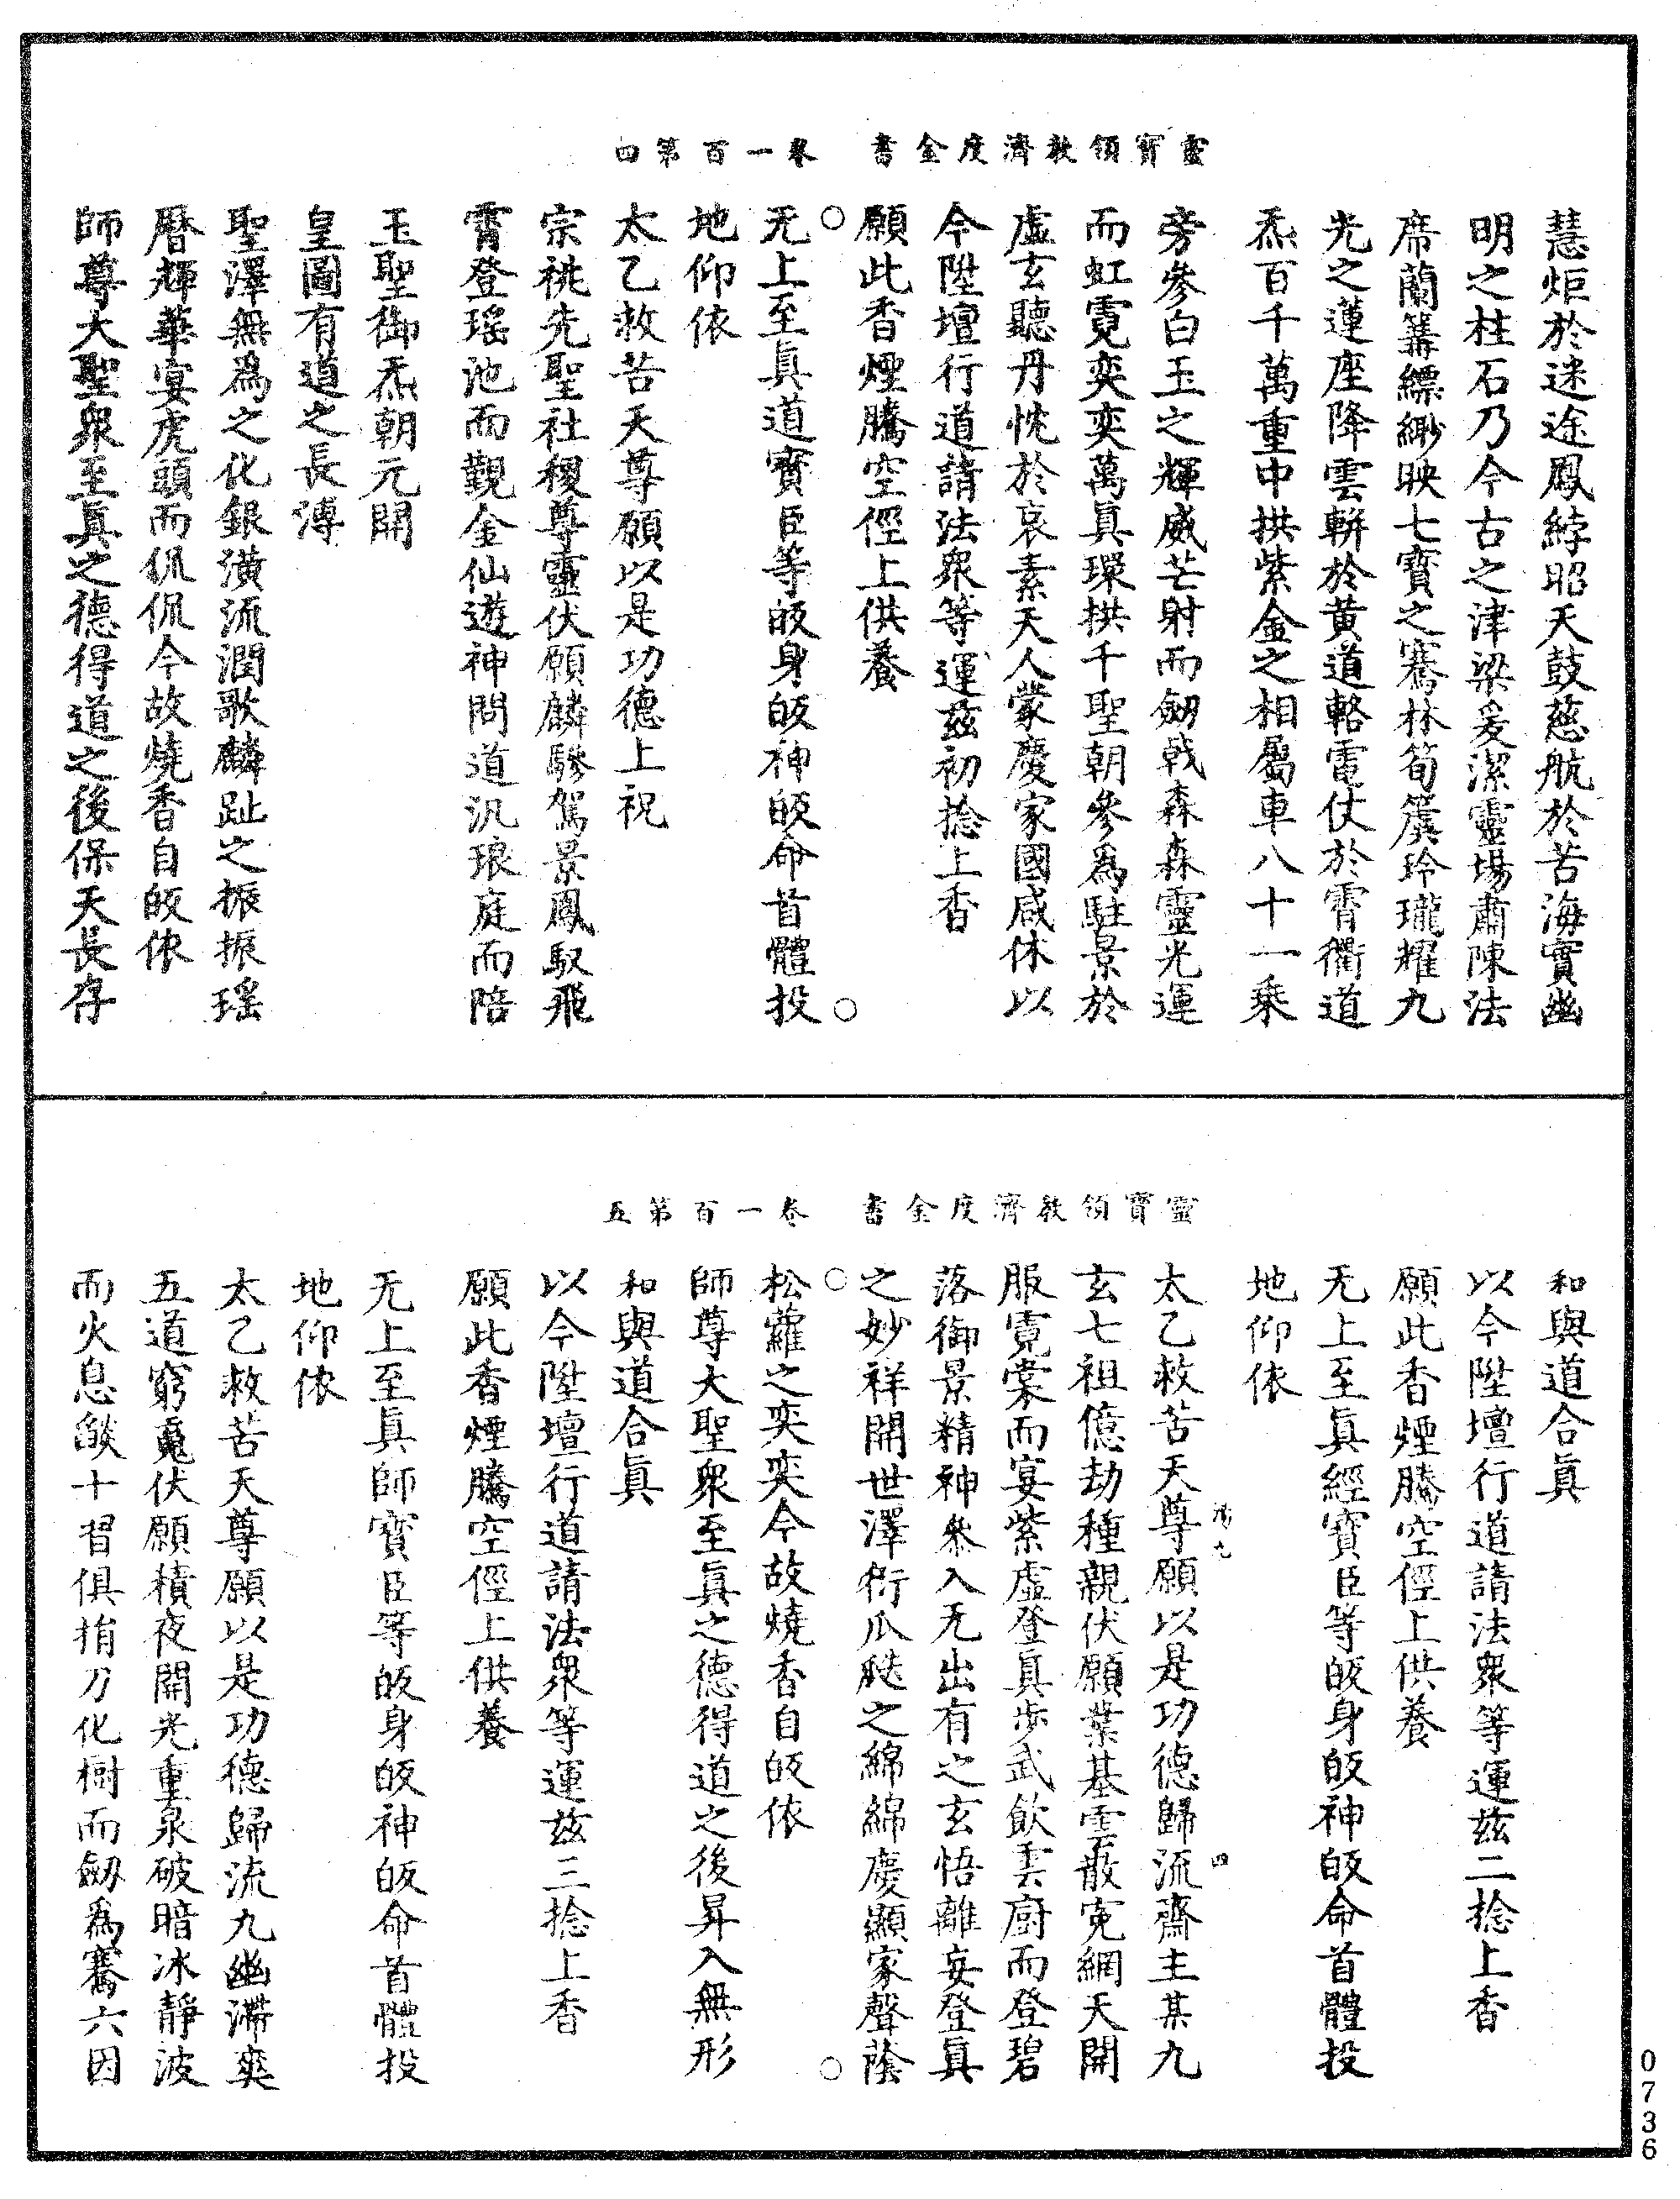 靈寶領教濟度金書 卷一百第四
慧炬於迷途鳳綍昭天鼓慈航於苦海實幽
明之柱石乃今古之津梁爰潔靈場肅陳法
席蘭篝縹緲映七寶之騫林筍簴玲瓏耀九
光之蓮座降雲軿於黄道輅電仗於霄衢道
炁百千萬重中拱紫金之相屬車八十一乘
旁參白玉之輝威芒射而劒戟森森靈光運
而虹霓奕奕萬眞環拱千聖朝參爲駐景於
虛玄聽丹忱於哀素天人蒙慶家國咸休以
今陞壇行道請法衆等運茲初捻上香
願此香煙騰空徑上供養
○無上至眞道寶臣等皈身皈神皈命首體投○
地仰依
太乙救苦天尊願以是功德上祝
宗祧先聖社稷尊靈伏願麟驂駕景鳳馭飛
霄登瑶池而覲金仙遊神問道汎琅庭而陪
玉聖御炁朝元開
皇圖有道之長溥
聖澤無爲之化銀潢流潤歌麟趾之振振瑶
曆輝華宴虎頭而侃侃今故燒香自皈依
師尊大聖衆至眞之德得道之後保天長存
靈寶領教濟度金書 卷一百第五
和與道合眞
以今陞壇行道請法衆等運茲二捻上香
願此香煙騰空徑上供養
无上至眞經寶臣等皈身皈神皈命首體投
地仰依
太乙救苦天尊願以是功德歸流齋主某九
玄七祖億劫種親伏願業基雲散寃網天開
服霓裳而宴紫虛登眞步武飲雲廚而登碧
落御景精神參入无出有之玄悟離妄登眞
之妙祥開世澤衍瓜瓞之綿綿慶顯家聲蔭
○松蘿之奕奕今故燒香自皈依○
師尊大聖衆至眞之德得道之後昇入無形
和與道合眞
以今陞壇行道請法衆等運茲三捻上香
願此香煙騰空徑上供養
无上至眞師寶臣等皈身皈神皈命首體投
地仰依
太乙救苦天尊願以是功德歸流九幽滯爽
五道窮䰟伏願積夜開光重泉破暗冰靜波
而火息燄十習俱捐刀化樹而劒爲騫六因
0736